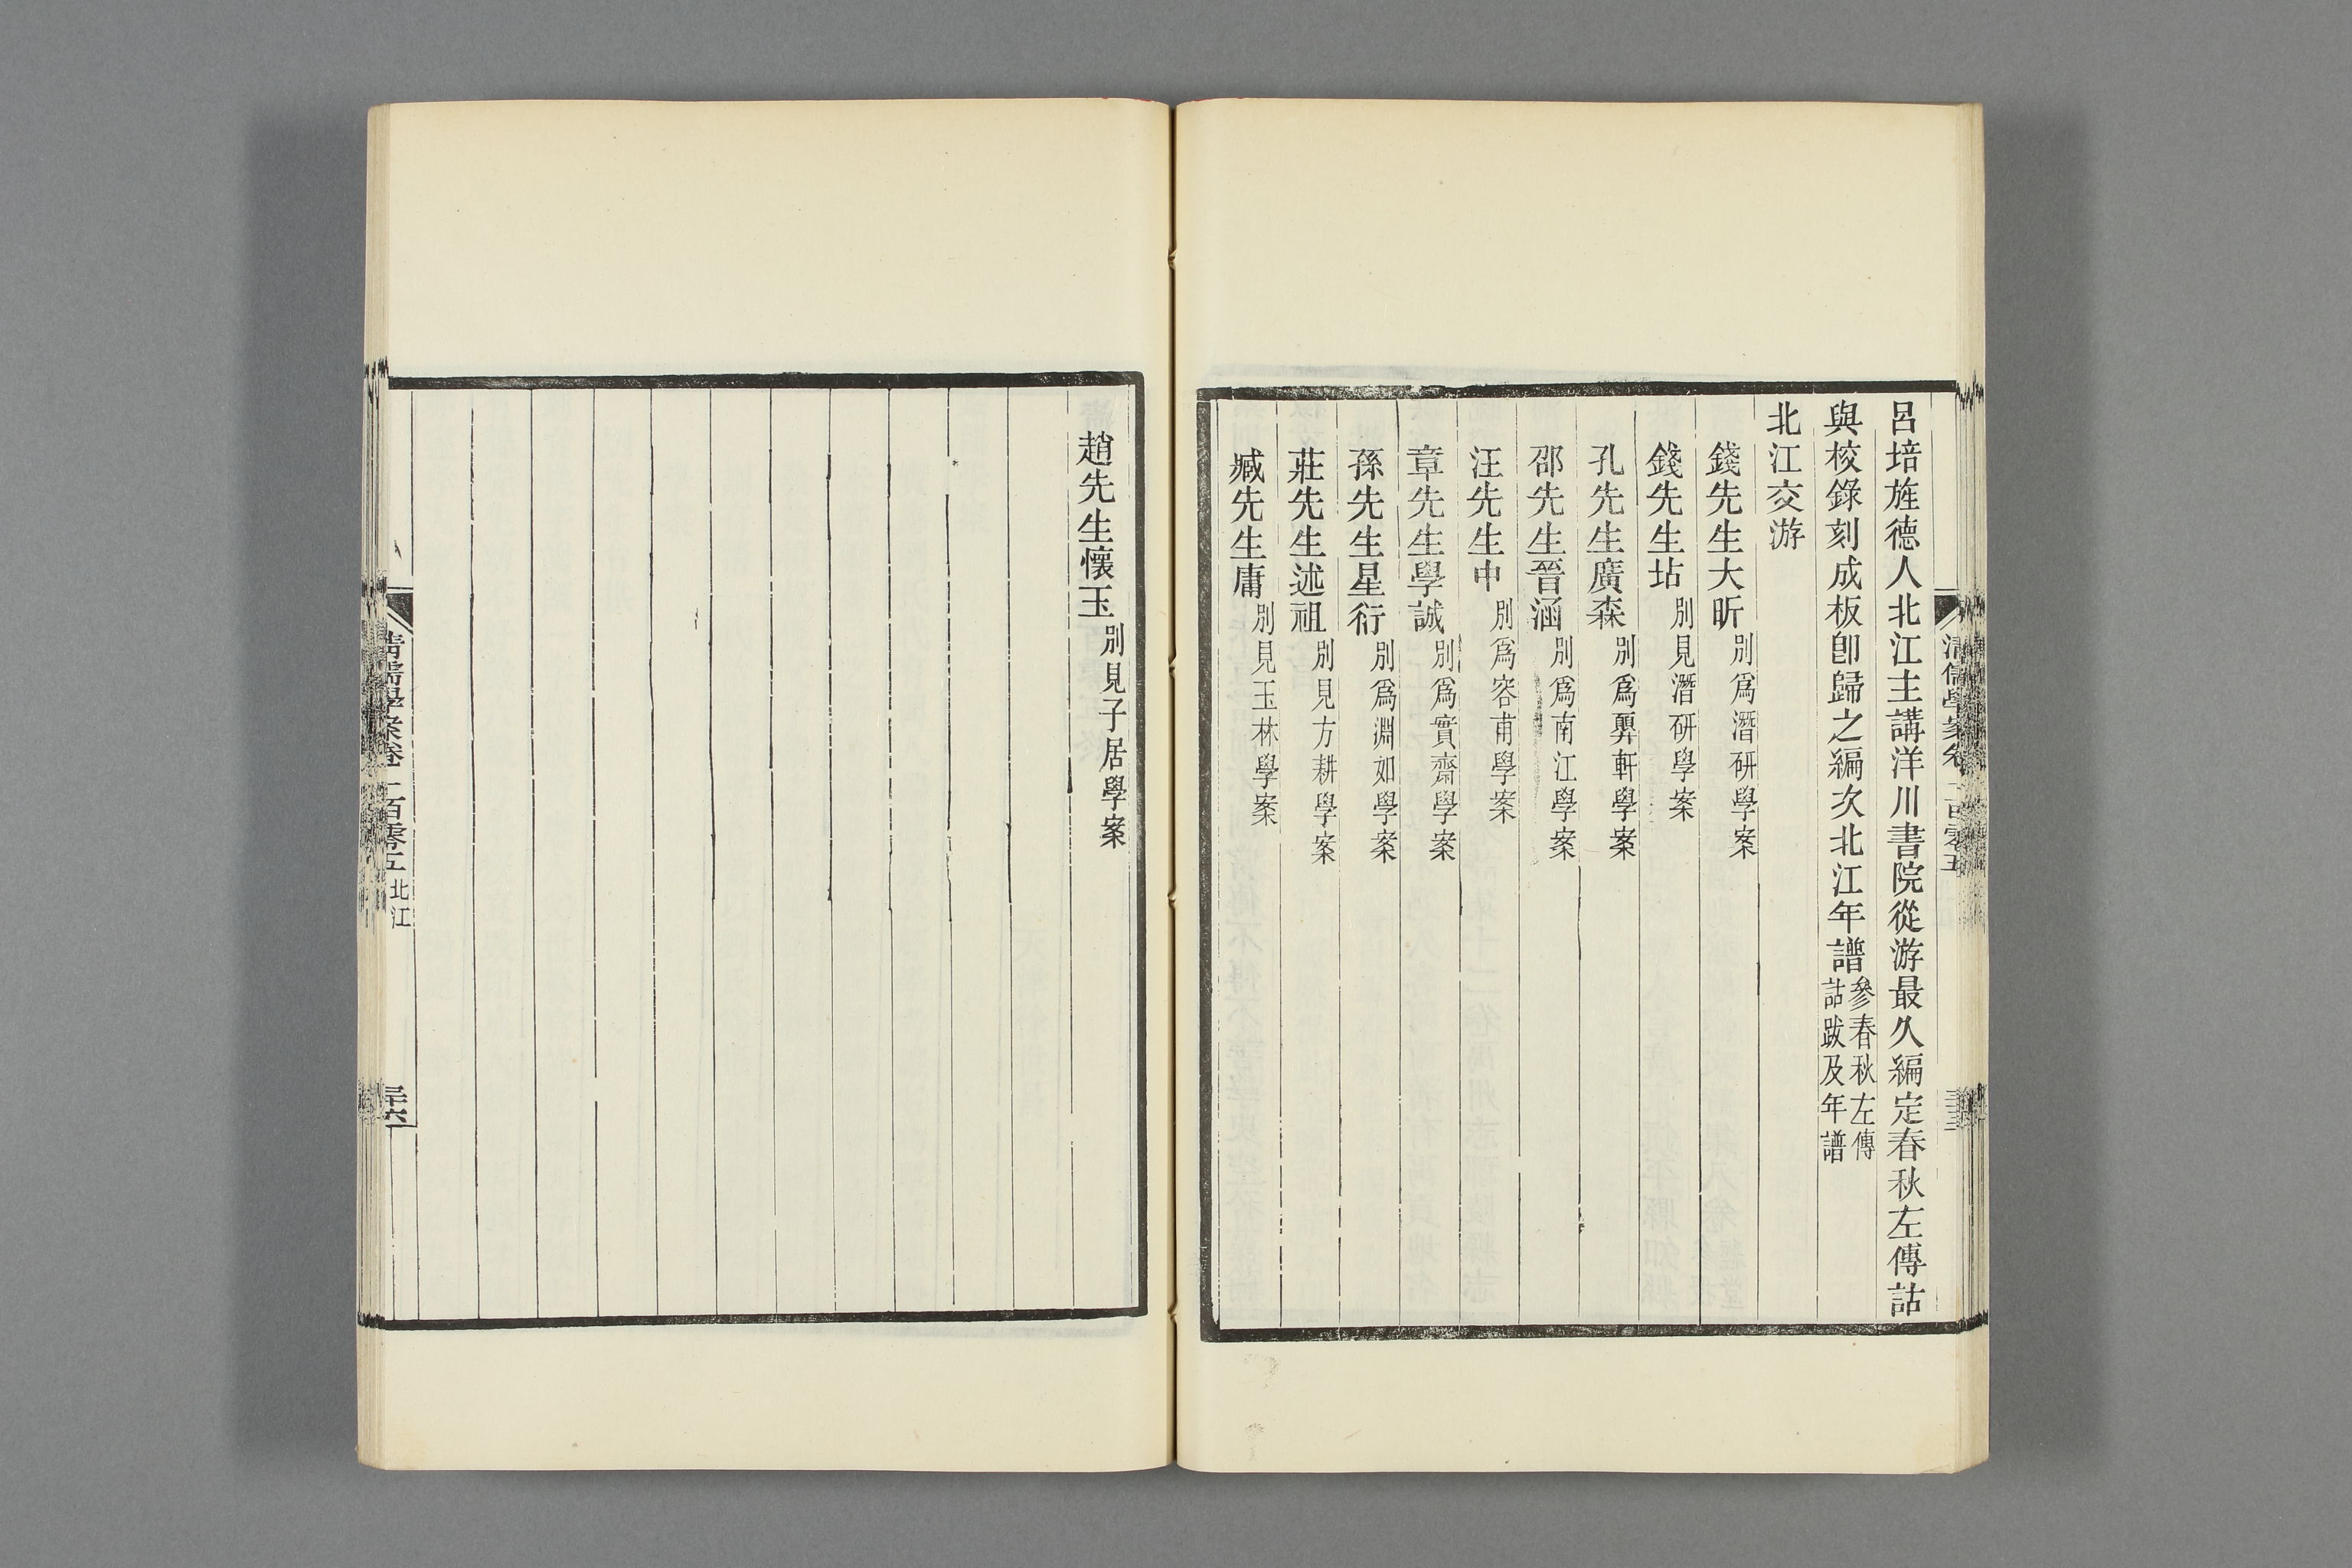 呂培旌德人北江主講洋川書院從游最久編定春秋左傳詁
與校錄刻成板卽歸之編次北江年譜參春秋左傳詁跋及年譜
北江交游
錢先生大昕別爲潛研學案
錢先生坫別見潛研學案
孔先生廣森別爲顨軒學案
邵先生晉涵別爲南江學案
汪先生中別爲容甫學案
章先生學誠別爲實齋學案
孫先生星衍別爲淵如學案
莊先生述祖別見方耕學案
臧先生庸別見玉林學案
趙先生懷玉別見子居學案
清儒學案卷一百零五 北江
三十六